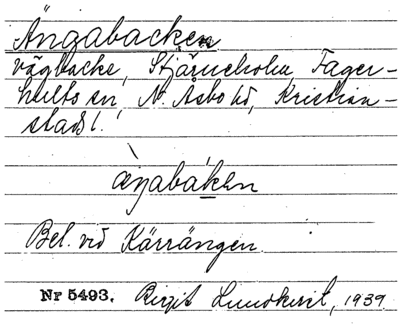 Ängabacken
vägbacke, Stjärneholm, Fager-
hults sn, N. Åsbo hd, Kristian-
stads l.
æŋabákən
Bel. vid Kärrängen.
Nr 5493. Birgit Lundkvist, 1939